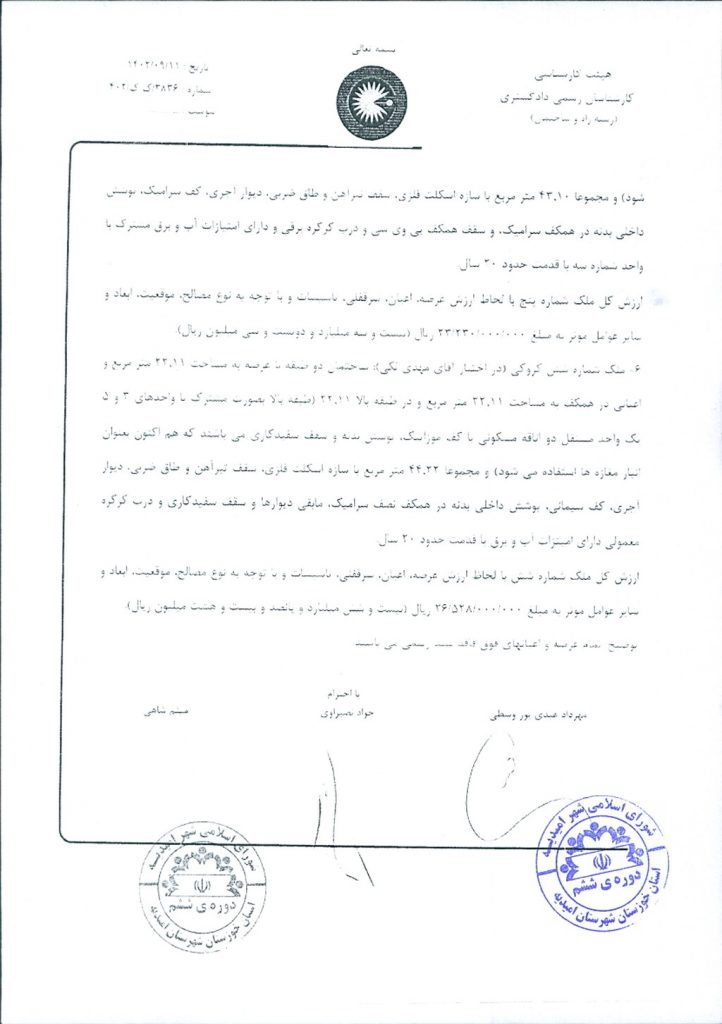 بسمه تعالی
هیئت کارشناسی
کارشناسان رسمی دادگستری
(رشته راه و ساختمان)
تاریخ: ۱۴۰۲/۰۹/۱۱
شماره: ۳۸۳۶/ک ک/۴۰۲
شود) و مجموعا ۴۳.۱۰ متر مربع با سازه اسکلت فلزی، سقف تیرآهن و طاق ضربی، دیوار آجری، کف سرامیک، پوشش
داخلی بدنه در همکف سرامیک، و سقف همکف پی وی سی و درب کرکره برقی و دارای امتیازات آب و برق مشترک با
واحد شماره سه با قدمت حدود ۳۰ سال.
ارزش کل ملک شماره پنج با لحاظ ارزش عرصه، اعیان، سرقفلی، تاسیسات و با توجه به نوع مصالح، موقعیت، ابعاد و
سایر عوامل موثر به مبلغ ۲۳/۲۳۰/۰۰۰/۰۰۰ ریال (بیست و سه میلیارد و دویست و سی میلیون ریال).
۶- ملک شماره شش کروکی (در اختیار آقای مهدی تکی): ساختمان دو طبقه با عرصه به مساحت ۲۲.۱۱ متر مربع و
اعیانی در همکف به مساحت ۲۲.۱۱ متر مربع و در طبقه بالا ۲۲.۱۱ (طبقه بالا بصورت مشترک با واحدهای ۳ و ۵
یک واحد مستقل دو اتاقه مسکونی با کف موزائیک، پوشش بدنه و سقف سفیدکاری می باشند که هم اکنون بعنوان
انبار مغازه ها استفاده می شود) و مجموعا ۴۴.۲۲ متر مربع با سازه اسکلت فلزی، سقف تیرآهن و طاق ضربی، دیوار
آجری، کف سیمانی، پوشش داخلی بدنه در همکف نصف سرامیک، مابقی دیوارها و سقف سفیدکاری و درب کرکره
معمولی دارای امتیازات آب و برق با قدمت حدود ۲۰ سال.
ارزش کل ملک شماره شش با لحاظ ارزش عرصه، اعیان، سرقفلی، تاسیسات و با توجه به نوع مصالح، موقعیت، ابعاد و
سایر عوامل موثر به مبلغ ۲۶/۵۲۸/۰۰۰/۰۰۰ ریال (بیست و شش میلیارد و پانصد و بیست و هشت میلیون ریال).
توضیح: تمام عرصه و اعیانیهای فوق فاقد سند رسمی می باشند.
با احترام
مهرداد عبدی پور وسطی
جواد نصیراوی
میثم شاهی
شورای اسلامی شهر امیدیه
دوره ی ششم
استان خوزستان شهرستان امیدیه
شورای اسلامی شهر امیدیه
دوره ی ششم
استان خوزستان شهرستان امیدیه